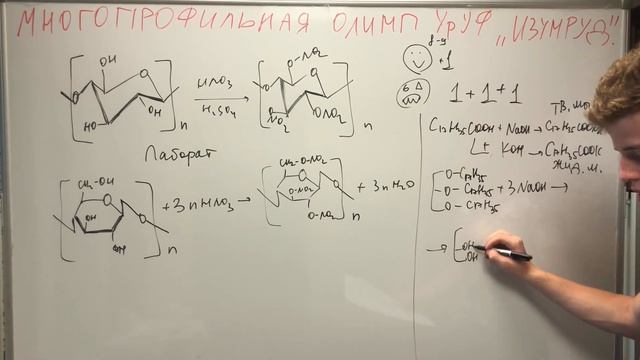 МНОГОПРОФИЛЬНАЯ ОЛИМП УрУФ „ИЗУМРУД”.
OH
O
O
HO
OH
n
HNO₃
H₂SO₄
O-NO₂
O
O
NO₂
ONO₂
n
Лаборат
CH₂-OH
O
OH
O
n
+ 3n HNO₃ →
CH₂-O-NO₂
O
O-NO₂
O-NO₂
O
n
+ 3n H₂O
+1
6
1 + 1 + 1
C₁₇H₃₅COOH + NaOH → C₁₇H₃₅COO
+ KOH → C₁₇H₃₅COOK
O- C₁₇H₃₅
O- C₁₇H₃₅ + 3 NaOH →
O- C₁₇H₃₅
→
OH
OH